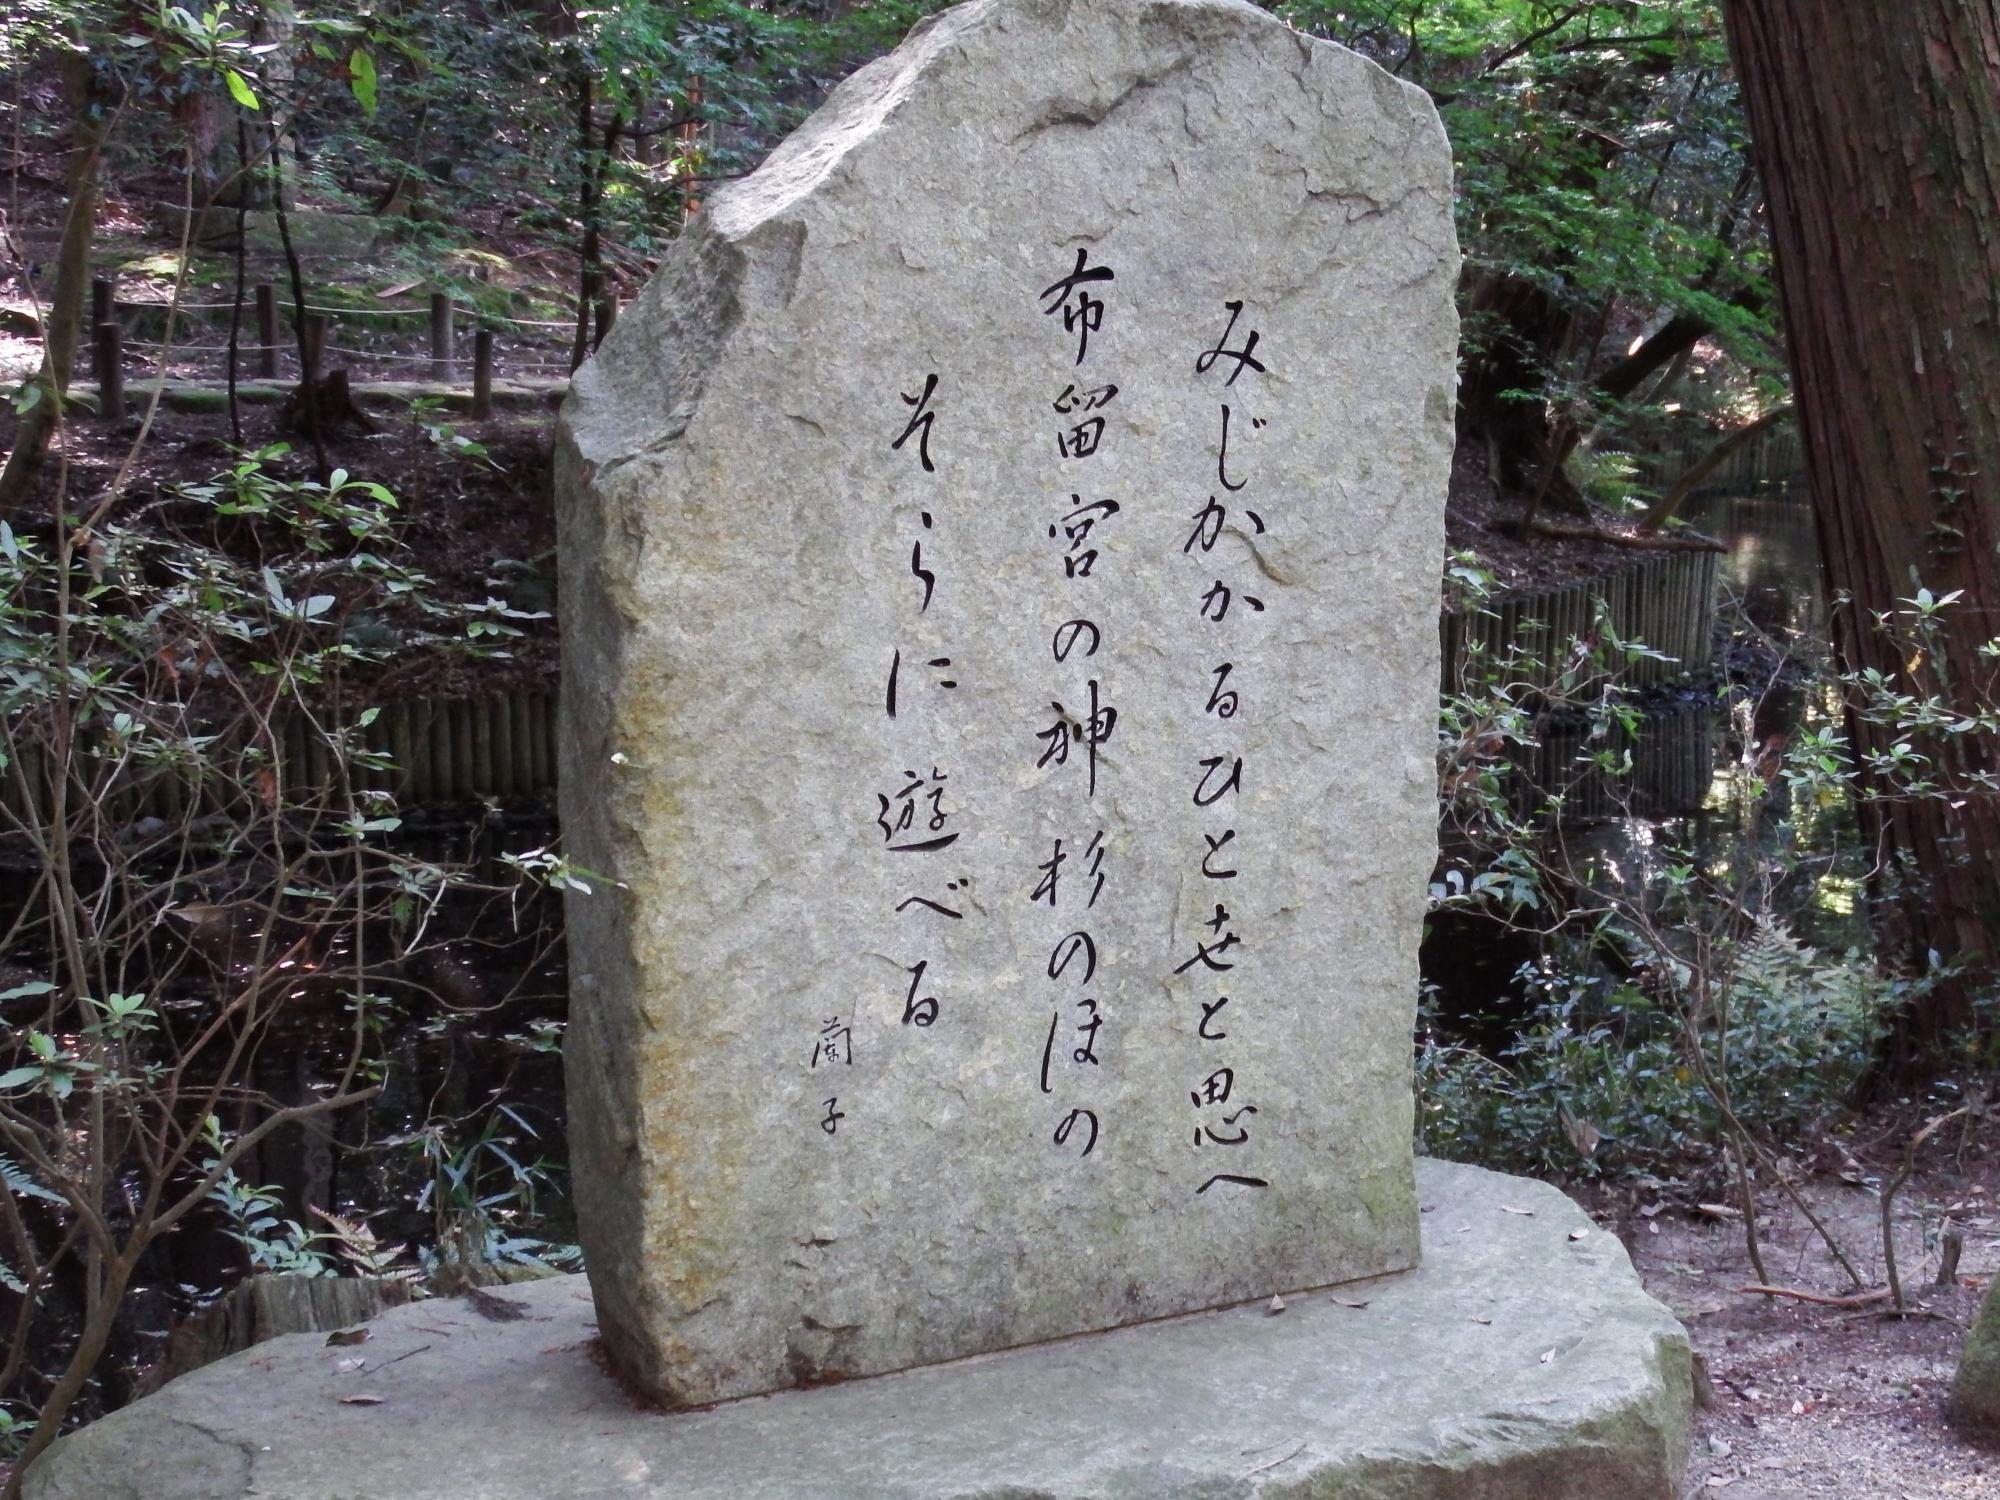 みじかかるひと世と思へ
布留宮の神杉のほの
そらに遊べる
蘭子